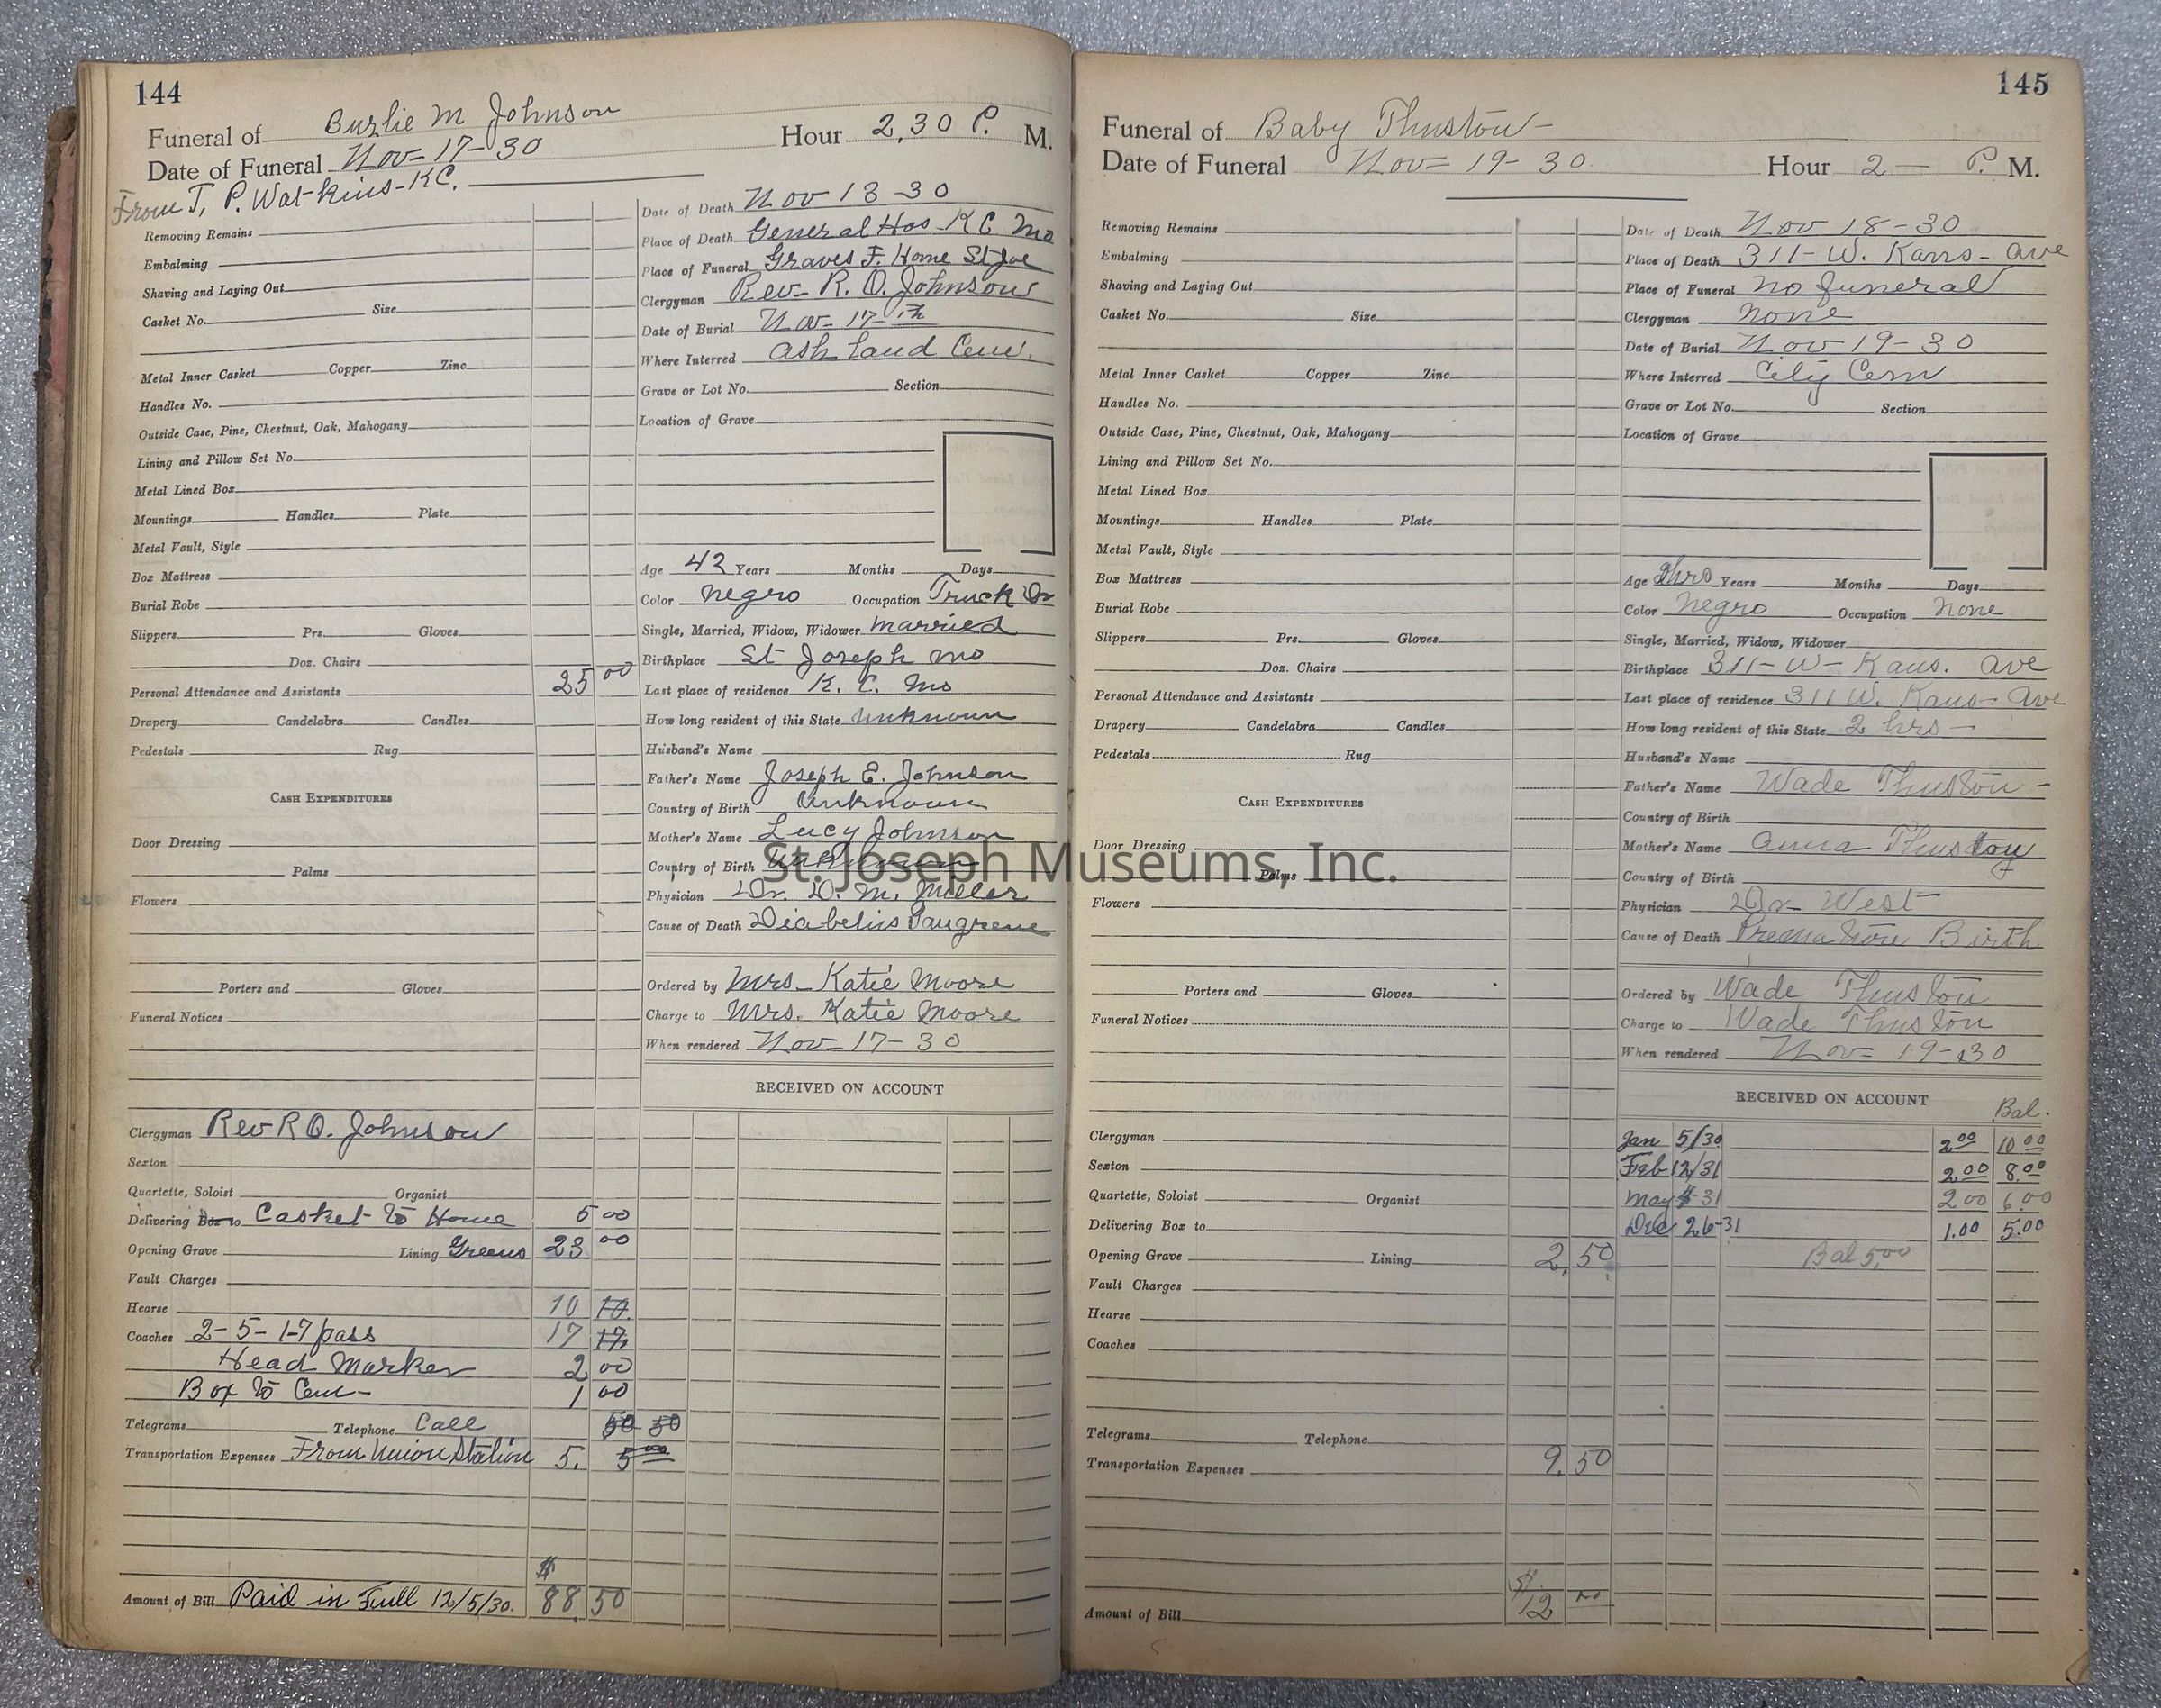 144
Funeral of Burlie M Johnson
Date of Funeral Nov- 17-30 Hour 2,30 P. M.
From T. P. Watkins-KC.
Removing Remains
Embalming
Shaving and Laying Out
Casket No. Size
Metal Inner Casket Copper Zinc
Handles No.
Outside Case, Pine, Chestnut, Oak, Mahogany
Lining and Pillow Set No.
Metal Lined Box
Mountings Handles Plate
Metal Vault, Style
Box Mattress
Burial Robe
Slippers Prs. Gloves
Doz. Chairs
Personal Attendance and Assistants 25 00
Drapery Candelabra Candles
Pedestals Rug
CASH EXPENDITURES
Door Dressing
Palms
Flowers
Porters and Gloves
Funeral Notices
Clergyman Rev R O. Johnson
Sexton
Quartette, Soloist Organist
Delivering Box to Casket to Home 5 00
Opening Grave Lining Greens 23 00
Vault Charges
Hearse 10 10.
Coaches 2-5-1-7 pass 17 17.
Head Marker 2 00
Box to Cem- 1 00
Telegrams Telephone Call 50 50
Transportation Expenses From Union Station 5. 5 00
Amount of Bill Paid in Full 12/5/30. $ 88.50
Date of Death Nov 13-30
Place of Death General Hos KC Mo
Place of Funeral Graves F. Home St Joe
Clergyman Rev- R. O. Johnson
Date of Burial Nov- 17-th
Where Interred Ashland Cem.
Grave or Lot No. Section
Location of Grave
Age 42 Years Months Days
Color Negro Occupation Truck Dr
Single, Married, Widow, Widower Married
Birthplace St Joseph Mo
Last place of residence K. C. Mo
How long resident of this State Unknown
Husband's Name
Father's Name Joseph E. Johnson
Country of Birth Unknown
Mother's Name Lucy Johnson
Country of Birth Unknown
Physician Dr. D. M. Miller
Cause of Death Diabetius Gangrene
Ordered by Mrs- Katie Moore
Charge to Mrs. Katie Moore
When rendered Nov- 17-30
RECEIVED ON ACCOUNT
145
Funeral of Baby Thuston-
Date of Funeral Nov- 19-30. Hour 2- P. M.
Removing Remains
Embalming
Shaving and Laying Out
Casket No. Size
Metal Inner Casket Copper Zinc
Handles No.
Outside Case, Pine, Chestnut, Oak, Mahogany
Lining and Pillow Set No.
Metal Lined Box
Mountings Handles Plate
Metal Vault, Style
Box Mattress
Burial Robe
Slippers Prs. Gloves
Doz. Chairs
Personal Attendance and Assistants
Drapery Candelabra Candles
Pedestals Rug
CASH EXPENDITURES
Door Dressing
Palms
Flowers
Porters and Gloves
Funeral Notices
Clergyman
Sexton
Quartette, Soloist Organist
Delivering Box to
Opening Grave Lining 2.50
Vault Charges
Hearse
Coaches
Telegrams Telephone
Transportation Expenses 9.50
Amount of Bill $12
Date of Death Nov 18-30
Place of Death 311-W. Kans- Ave
Place of Funeral No funeral
Clergyman None
Date of Burial Nov 19-30
Where Interred City Cem
Grave or Lot No. Section
Location of Grave
Age 2hrs Years Months Days
Color Negro Occupation None
Single, Married, Widow, Widower
Birthplace 311-W-Kans. Ave
Last place of residence 311 W. Kans- Ave
How long resident of this State 2 hrs-
Husband's Name
Father's Name Wade Thuston-
Country of Birth
Mother's Name Anna
Country of Birth
Physician Dr- West
Cause of Death Birth
Ordered by Wade Thuston
Charge to Wade Thuston
When rendered Nov- 19-30
RECEIVED ON ACCOUNT
Bal.
Jan 5/30 2.00 10.00
Feb 12/31 2.00 8.00
May 31 2.00 6.00
Dec 26-31 1.00 5.00
Bal 5.00
St. Joseph Museums, Inc.